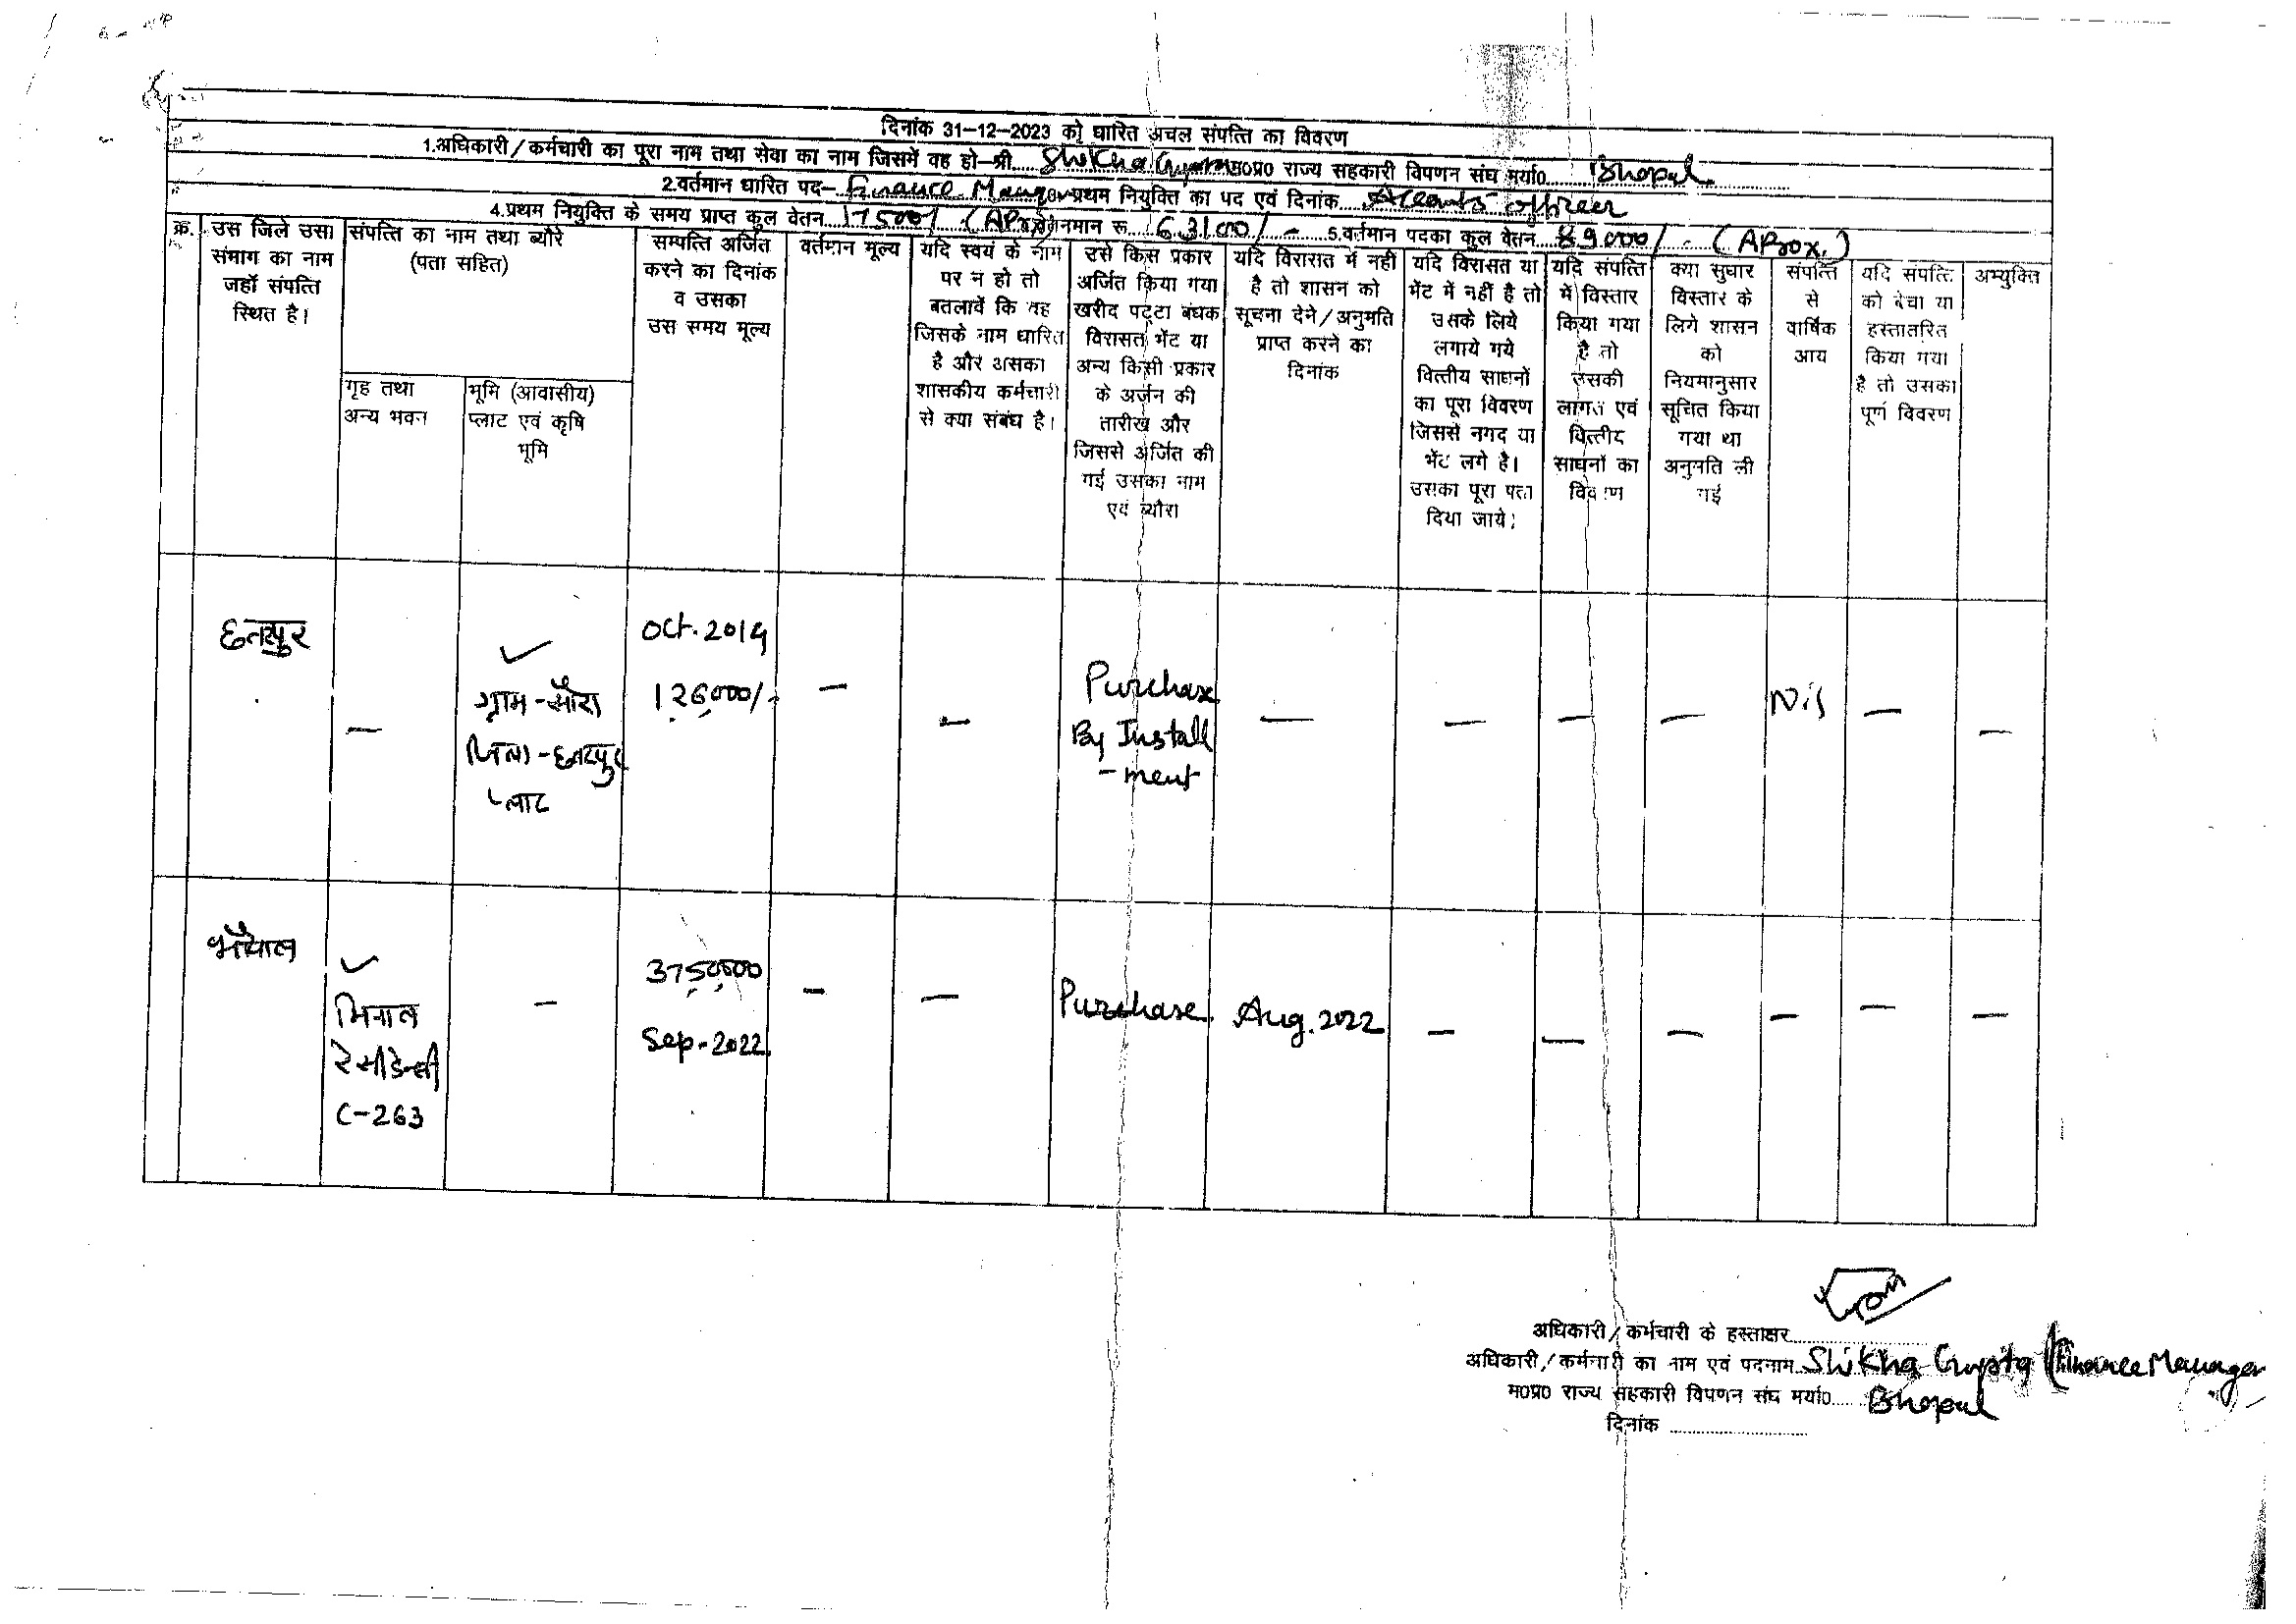 दिनांक 31-12-2023 को धारित अचल संपत्ति का विवरण
1.अधिकारी/कर्मचारी का पूरा नाम तथा सेवा का नाम जिसमें वह हो-श्री Shikha Gupta म0प्र0 राज्य सहकारी विपणन संघ मर्या0 Bhopal
2.वर्तमान धारित पद- Finance Manager प्रथम नियुक्ति का पद एवं दिनांक Accounts officer
4.प्रथम नियुक्ति के समय प्राप्त कुल वेतन 17500/ (APrx) वेतनमान रू 63100/- 5.वर्तमान पदका कुल वेतन 89000/- (AProx.)
क्र.
उस जिले उसा
संभाग का नाम
जहॉ संपत्ति
स्थित है।
संपत्ति का नाम तथा ब्यौरे
(पता सहित)
गृह तथा
अन्य भवन
भूमि (आवासीय)
प्लाट एवं कृषि
भूमि
सम्पत्ति अर्जित
करने का दिनांक
व उसका
उस समय मूल्य
वर्तमान मूल्य
यदि स्वयं के नाम
पर न हो तो
बतलावें कि वह
जिसके नाम धारित
है और असका
शासकीय कर्मचारी
से क्या संबंध है।
उसे किस प्रकार
अर्जित किया गया
खरीद पट्टा बंधक
विरासत भेंट या
अन्य किसी प्रकार
के अर्जन की
तारीख और
जिससे अर्जित की
गई उसका नाम
एवं ब्यौरा
यदि विरासत में नही
है तो शासन को
सूचना देने/अनुमति
प्राप्त करने का
दिनांक
यदि विरासत या
भेंट में नहीं है तो
उसके लिये
लगाये गये
वित्तीय साधनों
का पूरा विवरण
जिससे नगद या
भेंट लगे है।
उसका पूरा पता
दिया जाये।
यदि संपत्ति
में विस्तार
किया गया
है तो
उसकी
लागत एवं
वित्तीय
साधनों का
विवरण
क्या सुधार
विस्तार के
लिगे शासन
को
नियमानुसार
सूचित किया
गया था
अनुमति ली
गई
संपत्ति
से
वार्षिक
आय
यदि संपत्ति
को बेचा या
हस्तातरित
किया गया
है तो उसका
पूर्ण विवरण
अभ्युक्ति
छतरपुर
—
✓
ग्राम-सौरा
जिला-छतरपुर
प्लाट
Oct. 2014
126,000/-
—
—
Purchase
By Install
-ment
—
—
—
—
Nil
—
—
भोपाल
✓
मिनाल
रेसीडेन्सी
C-263
—
3750000
Sep-2022
—
—
Purchase
Aug.2022
—
—
—
—
—
—
अधिकारी/कर्मचारी के हस्ताक्षर
अधिकारी/कर्मचारी का नाम एवं पदनाम Shikha Gupta (Finance Manager
म0प्र0 राज्य सहकारी विपणन संघ मर्या0 Bhopal
दिनांक